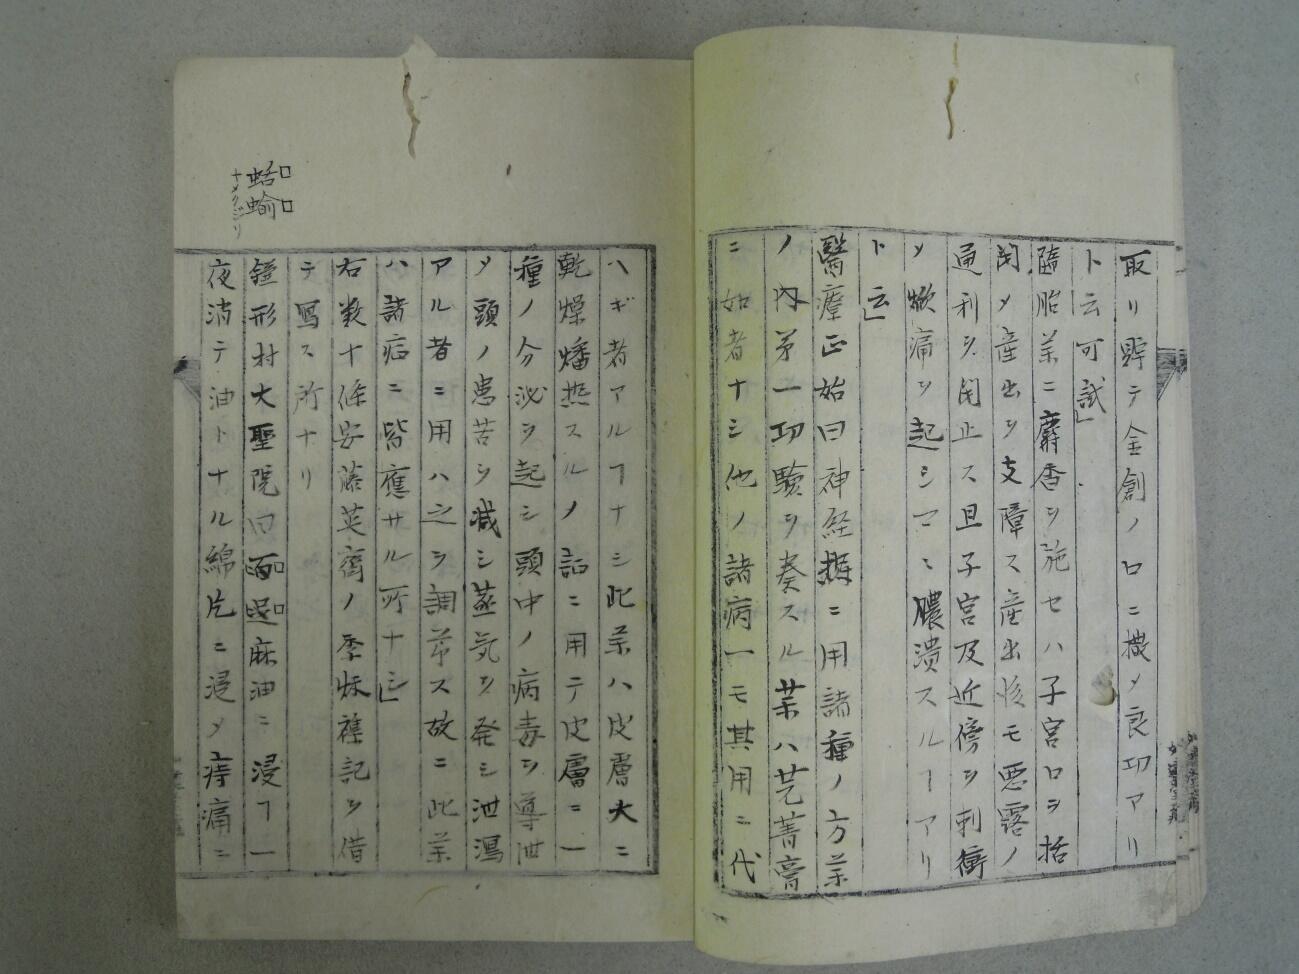 取リ貯テ金創ノ口ニ撒メ良功アリ
ト云可試」
臨胎薬ニ麝香ヲ施セハ子宮口ヲ括
閉メ産出ヲ支障ス産出後モ悪露ノ
通利ヲ閉止ス且子宮及近傍ヲ刺衝
メ焮痛ヲ起シマヽ膿潰スルヿアリ
ト云」
醫療正始曰神経掀ニ用諸種ノ方薬
ノ内第一功驗ヲ奏スル薬ハ芫菁膏
ニ如者ナシ他ノ諸病一モ其用ニ代
ヘキ者アルヿナシ此薬ハ皮膚大ニ
乾燥燔熱スルノ証ニ用テ皮膚ニ一
種ノ分泌ヲ起シ頭中ノ病毒ヲ導泄
メ頭ノ患苦ヲ減シ蒸気ヲ発シ泄瀉
アル者ニ用ハ之ヲ調節ス故ニ此薬
ハ諸症ニ皆應サル所ナシ」
右数十條安藤英齋ノ季秌襍記ヲ借
テ写ス所ナリ
鎧形村大聖院曰 麻油ニ浸ヿ一
夜消テ油トナル綿片ニ浸メ痔痛ニ
蛞蝓
ナメクジリ